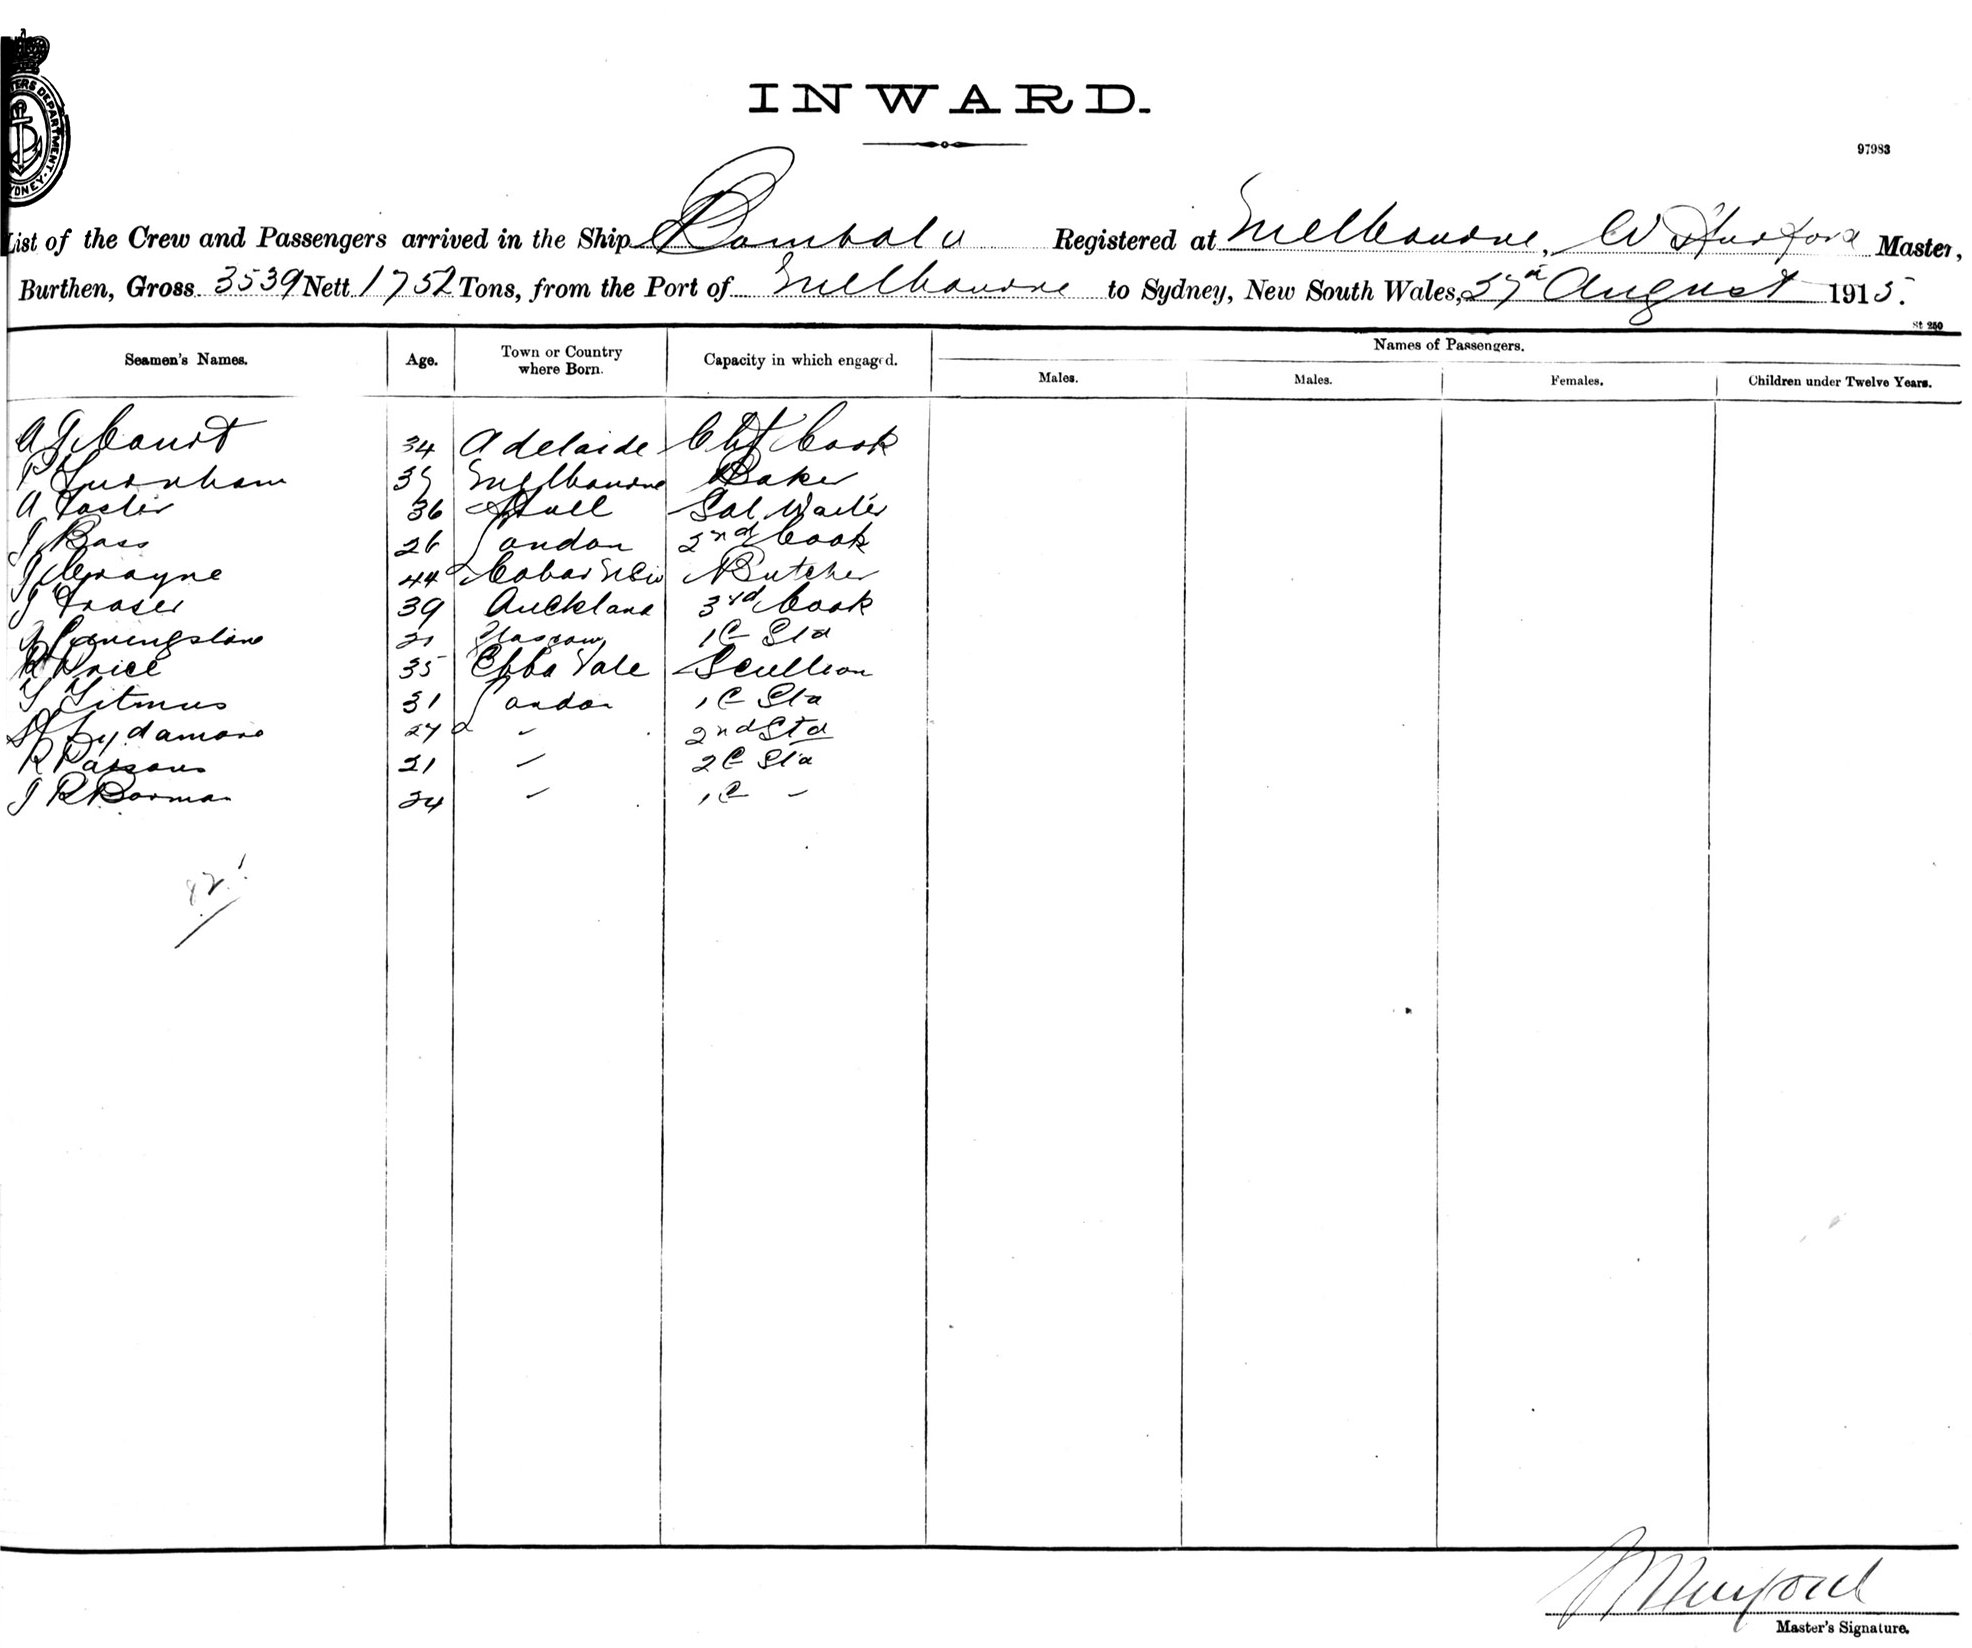 TERS DEPARTMENT. SYDNEY.
INWARD.
97983
List of the Crew and Passengers arrived in the Ship Bombala Registered at Melbourne, W Hurford Master,
Burthen, Gross 3539 Nett 1752 Tons, from the Port of Melbourne to Sydney, New South Wales, August 1915.
St 250
Seamen's Names. Age. Town or Country where Born. Capacity in which engaged. Names of Passengers.
Males. Males. Females. Children under Twelve Years.
A G Court 34 Adelaide Chf Cook
P Turnham Melbourne Baker
A Foster 36 Hull Sal Waiter
J Bass 26 London 2nd Cook
J Crayne 44 Cobar Butcher
J Fraser 39 Auckland 3rd Cook
Livingstone 21 Glasgow 1 C Std
Price 35 Ebba Vale Scullion
Titmus 31 London 1 C Std
Lydamore 27 " 2nd Std
R Parsons 21 " 2 C Std
J R Borman 24 " 1 C "
12
Master's Signature.